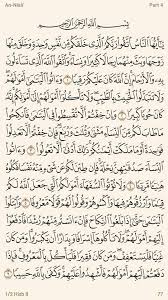 An-Nisā'	Part 4
بِسْمِ ٱللَّهِ ٱلرَّحْمَٰنِ ٱلرَّحِيمِ
يَٰٓأَيُّهَا ٱلنَّاسُ ٱتَّقُوا۟ رَبَّكُمُ ٱلَّذِى خَلَقَكُم مِّن نَّفْسٍ وَٰحِدَةٍ وَخَلَقَ مِنْهَا
زَوْجَهَا وَبَثَّ مِنْهُمَا رِجَالًا كَثِيرًا وَنِسَآءً وَٱتَّقُوا۟ ٱللَّهَ ٱلَّذِى
تَسَآءَلُونَ بِهِۦ وَٱلْأَرْحَامَ إِنَّ ٱللَّهَ كَانَ عَلَيْكُمْ رَقِيبًا ١ وَءَاتُوا۟
ٱلْيَتَٰمَىٰٓ أَمْوَٰلَهُمْ وَلَا تَتَبَدَّلُوا۟ ٱلْخَبِيثَ بِٱلطَّيِّبِ وَلَا تَأْكُلُوٓا۟ أَمْوَٰلَهُمْ
إِلَىٰٓ أَمْوَٰلِكُمْ إِنَّهُۥ كَانَ حُوبًا كَبِيرًا ٢ وَإِنْ خِفْتُمْ أَلَّا تُقْسِطُوا۟ فِى
ٱلْيَتَٰمَىٰ فَٱنكِحُوا۟ مَا طَابَ لَكُم مِّنَ ٱلنِّسَآءِ مَثْنَىٰ وَثُلَٰثَ وَرُبَٰعَ
فَإِنْ خِفْتُمْ أَلَّا تَعْدِلُوا۟ فَوَٰحِدَةً أَوْ مَا مَلَكَتْ أَيْمَٰنُكُمْ ذَٰلِكَ أَدْنَىٰٓ
أَلَّا تَعُولُوا۟ ٣ وَءَاتُوا۟ ٱلنِّسَآءَ صَدُقَٰتِهِنَّ نِحْلَةً فَإِن طِبْنَ لَكُمْ
عَن شَىْءٍ مِّنْهُ نَفْسًا فَكُلُوهُ هَنِيٓـًٔا مَّرِيٓـًٔا ٤ وَلَا تُؤْتُوا۟ ٱلسُّفَهَآءَ
أَمْوَٰلَكُمُ ٱلَّتِى جَعَلَ ٱللَّهُ لَكُمْ قِيَٰمًا وَٱرْزُقُوهُمْ فِيهَا وَٱكْسُوهُمْ
وَقُولُوا۟ لَهُمْ قَوْلًا مَّعْرُوفًا ٥ وَٱبْتَلُوا۟ ٱلْيَتَٰمَىٰ حَتَّىٰٓ إِذَا بَلَغُوا۟
ٱلنِّكَاحَ فَإِنْ ءَانَسْتُم مِّنْهُمْ رُشْدًا فَٱدْفَعُوٓا۟ إِلَيْهِمْ أَمْوَٰلَهُمْ وَلَا
تَأْكُلُوهَآ إِسْرَافًا وَبِدَارًا أَن يَكْبَرُوا۟ وَمَن كَانَ غَنِيًّا فَلْيَسْتَعْفِفْ
وَمَن كَانَ فَقِيرًا فَلْيَأْكُلْ بِٱلْمَعْرُوفِ فَإِذَا دَفَعْتُمْ إِلَيْهِمْ
أَمْوَٰلَهُمْ فَأَشْهِدُوا۟ عَلَيْهِمْ وَكَفَىٰ بِٱللَّهِ حَسِيبًا ٦
1/2 Hizb 8	77